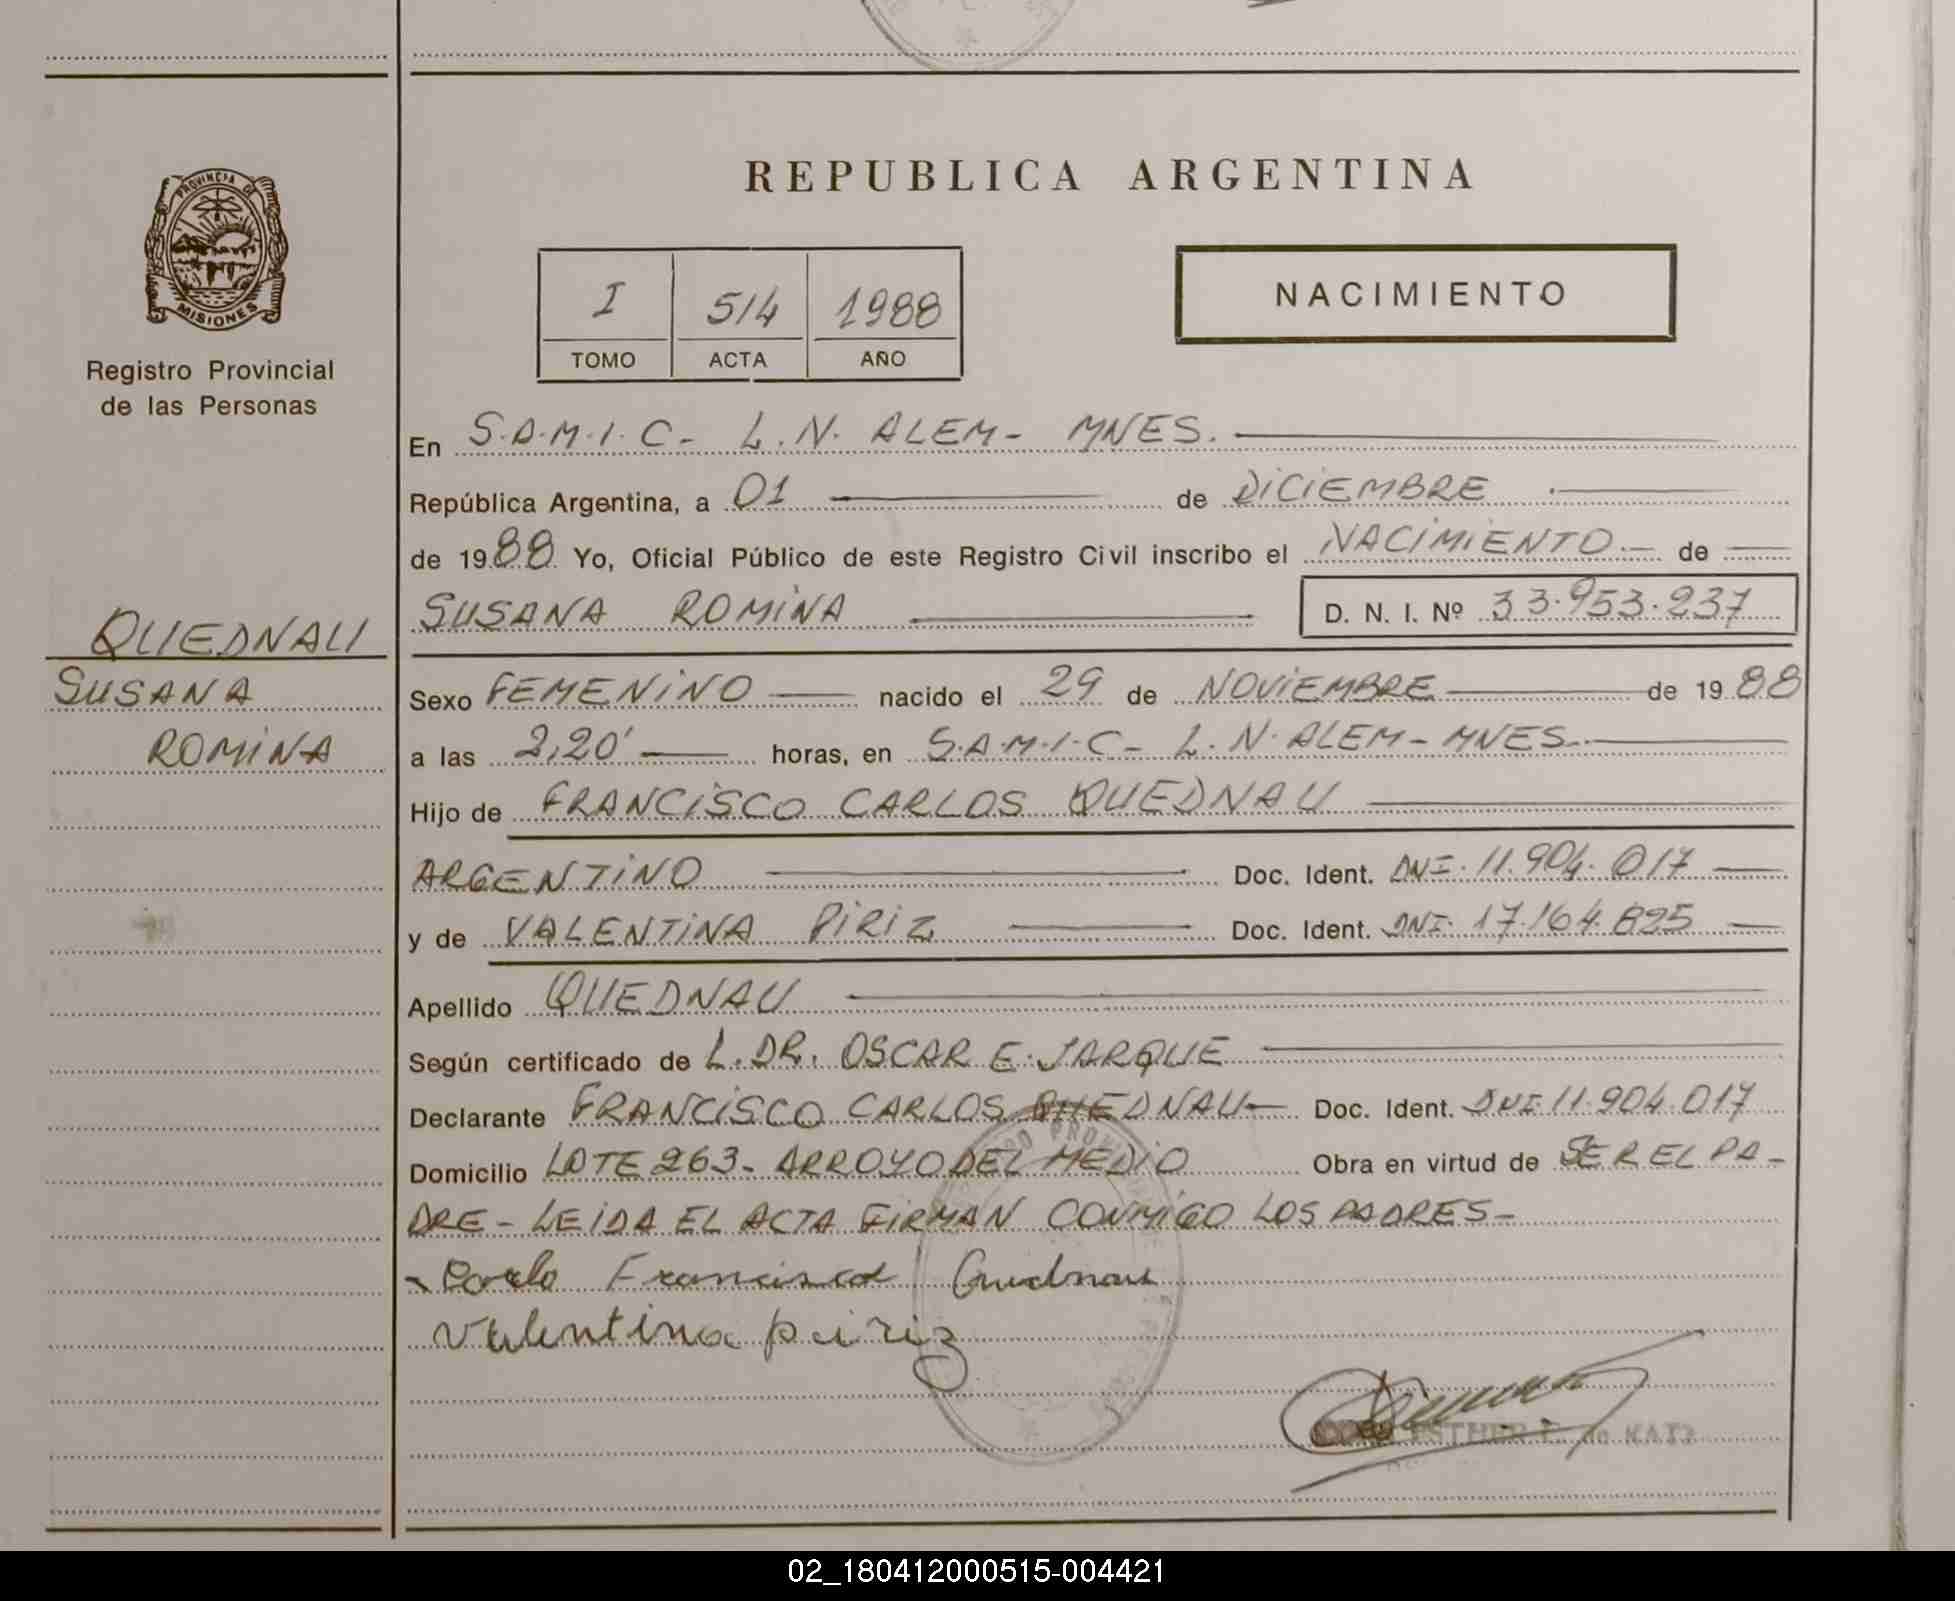 REPUBLICA ARGENTINA
PROVINCIA DE
MISIONES
Registro Provincial
de las Personas
I 514 1988
TOMO ACTA AÑO
NACIMIENTO
En S.A.M.I.C- L.N. ALEM- MNES.
República Argentina, a 01 de DICIEMBRE
de 1988 Yo, Oficial Público de este Registro Civil inscribo el NACIMIENTO.- de
SUSANA ROMINA D. N. I. Nº 33.953.237
QUEDNAU
SUSANA
ROMINA
Sexo FEMENINO nacido el 29 de NOVIEMBRE de 1988
a las 2,20' horas, en S.A.M.I.C- L.N. ALEM- MNES.
Hijo de FRANCISCO CARLOS QUEDNAU
ARGENTINO Doc. Ident. DNI. 11.904.017
y de VALENTINA PIRIZ Doc. Ident. DNI. 17.164.825
Apellido QUEDNAU
Según certificado de L. DR. OSCAR E. JARQUE
Declarante FRANCISCO CARLOS QUEDNAU Doc. Ident. DNI 11.904.017
Domicilio LOTE 263- ARROYO DEL MEDIO Obra en virtud de SER EL PA-
DRE- LEIDA EL ACTA FIRMAN CONMIGO LOS PADRES-
Francisco Quednau
Valentina piriz
ESTHER de KATZ
02_180412000515-004421